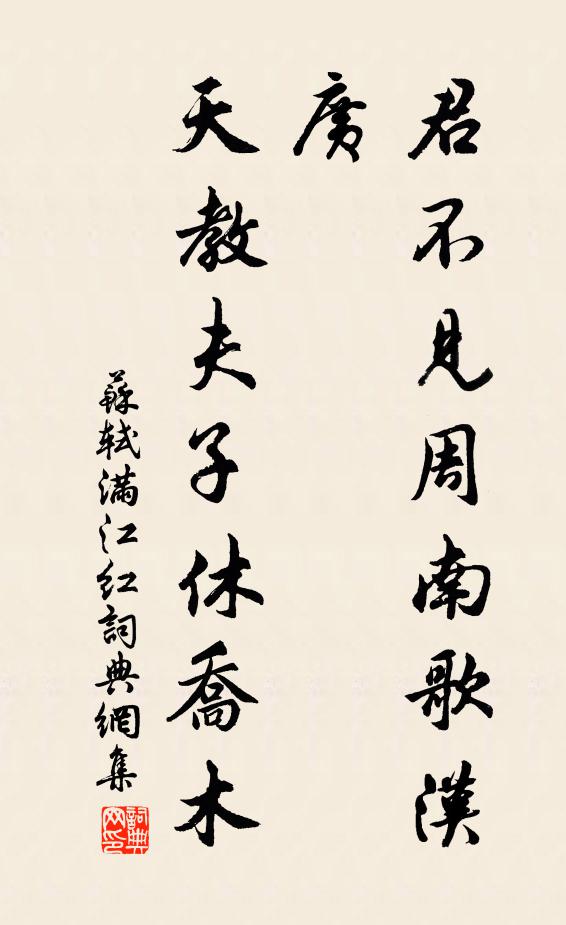 君不見周南歌漢
廣
天教夫子休喬木
蘇軾滿江紅詞典網集
詞典網印